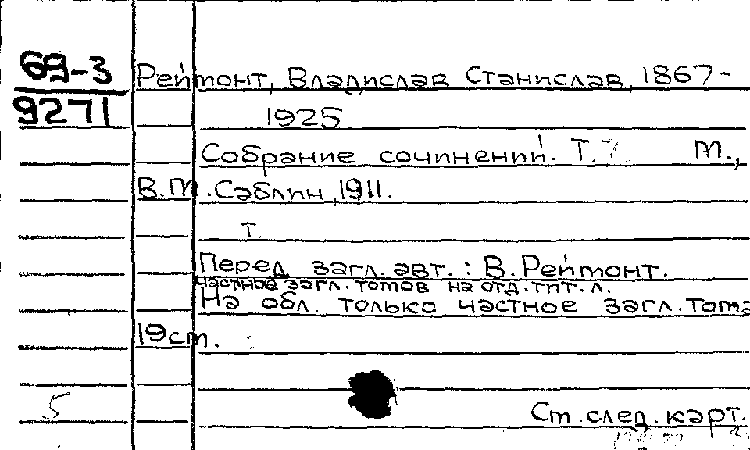 69-3
9271
Реймонт, Владислав Станислав, 1867-
1925
Собрание сочинений. Т. М.,
В.М. Саблин, 1911.
Т.
Перед загл. авт.: В. Реймонт.
Частное загл. томов на отд. тит. л.
На обл. только частное загл. тома
19 см.
5
Ст. след. карт.